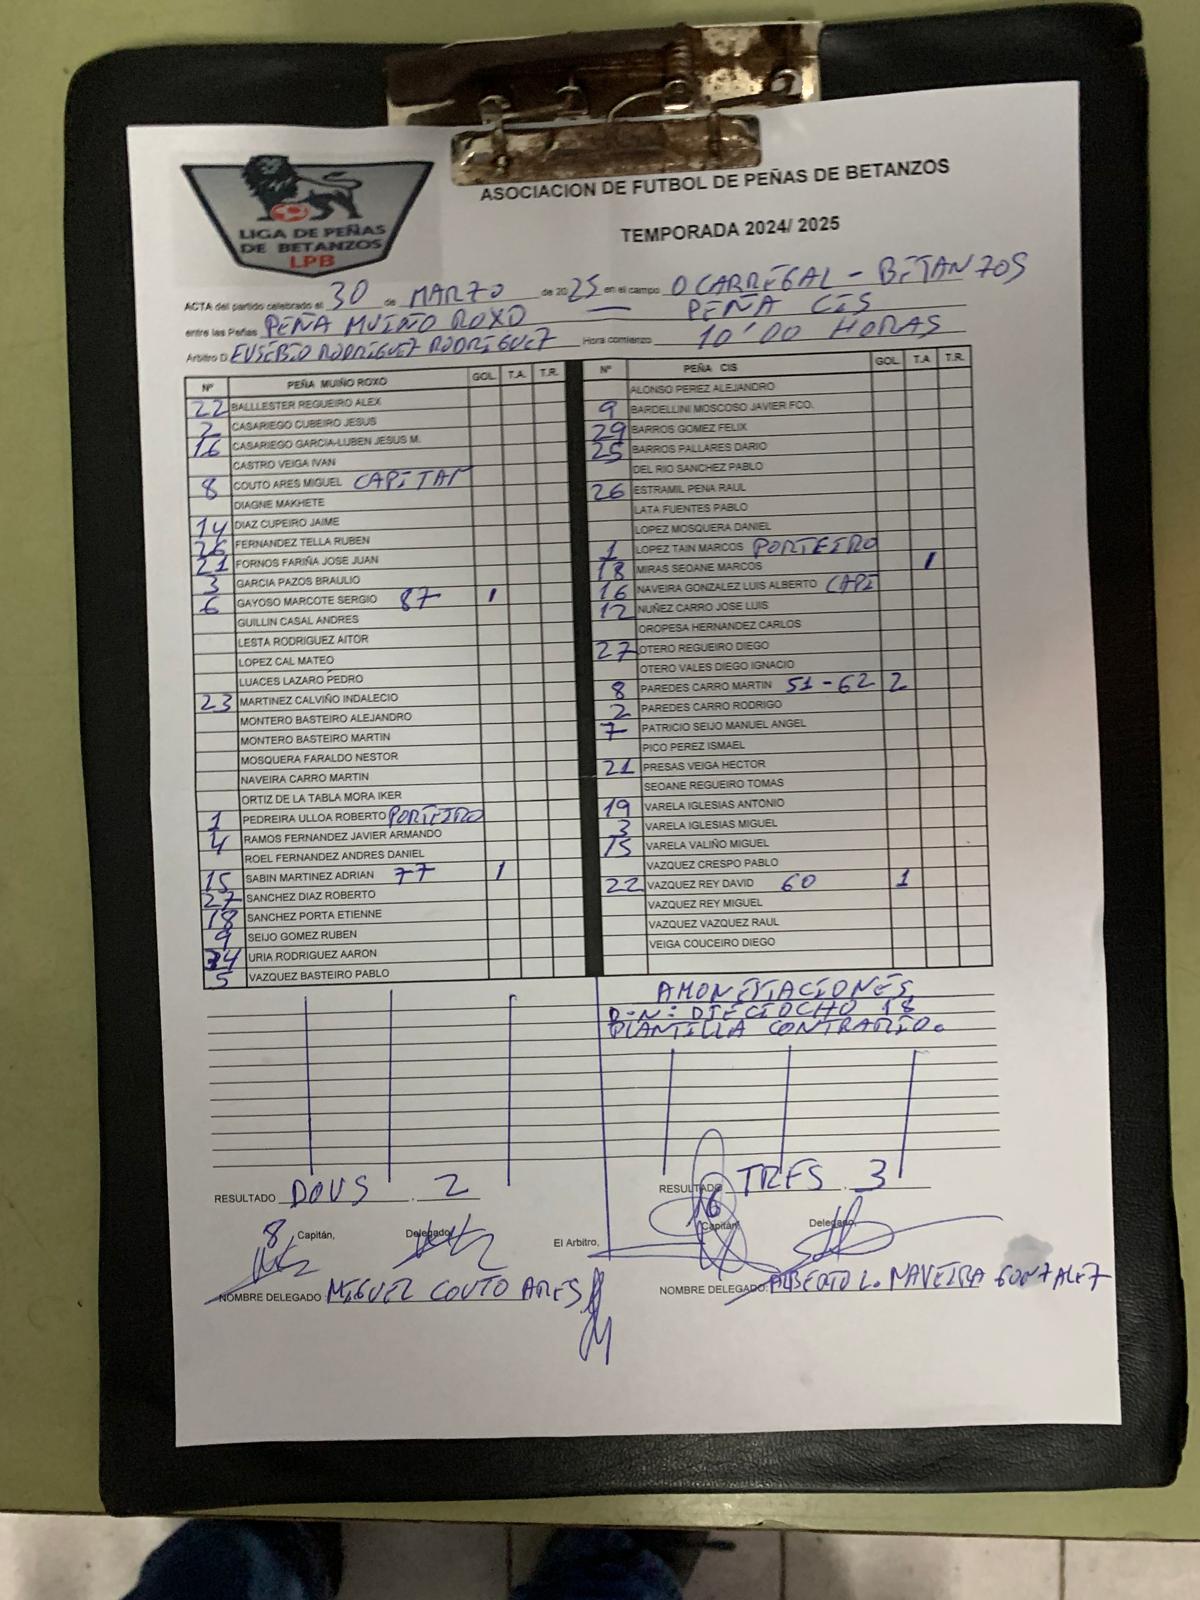 LIGA DE PEÑAS
DE BETANZOS
LPB
ASOCIACION DE FUTBOL DE PEÑAS DE BETANZOS
TEMPORADA 2024/ 2025
ACTA del partido celebrado el 30 de MARZO de 2025 en el campo O CARREGAL - BETANZOS
entre las Peñas PEÑA MUIÑO ROXO — PEÑA CIS
Arbitro D EUSEBIO RODRIGUEZ RODRIGUEZ Hora comienzo 10'00 HORAS
Nº PEÑA MUIÑO ROXO GOL T.A. T.R.
22 BALLLESTER REGUEIRO ALEX
2 CASARIEGO CUBEIRO JESUS
16 CASARIEGO GARCIA-LUBEN JESUS M.
CASTRO VEIGA IVAN
8 COUTO ARES MIGUEL CAPITAN
DIAGNE MAKHETE
14 DIAZ CUPEIRO JAIME
26 FERNANDEZ TELLA RUBEN
21 FORNOS FARIÑA JOSE JUAN
3 GARCIA PAZOS BRAULIO
6 GAYOSO MARCOTE SERGIO 87 1
GUILLIN CASAL ANDRES
LESTA RODRIGUEZ AITOR
LOPEZ CAL MATEO
LUACES LAZARO PEDRO
23 MARTINEZ CALVIÑO INDALECIO
MONTERO BASTEIRO ALEJANDRO
MONTERO BASTEIRO MARTIN
MOSQUERA FARALDO NESTOR
NAVEIRA CARRO MARTIN
ORTIZ DE LA TABLA MORA IKER
1 PEDREIRA ULLOA ROBERTO PORTEIRO
4 RAMOS FERNANDEZ JAVIER ARMANDO
ROEL FERNANDEZ ANDRES DANIEL
15 SABIN MARTINEZ ADRIAN 77 1
27 SANCHEZ DIAZ ROBERTO
18 SANCHEZ PORTA ETIENNE
9 SEIJO GOMEZ RUBEN
URIA RODRIGUEZ AARON
5 VAZQUEZ BASTEIRO PABLO
Nº PEÑA CIS GOL T.A T.R.
ALONSO PEREZ ALEJANDRO
9 BARDELLINI MOSCOSO JAVIER FCO.
29 BARROS GOMEZ FELIX
25 BARROS PALLARES DARIO
DEL RIO SANCHEZ PABLO
26 ESTRAMIL PENA RAUL
LATA FUENTES PABLO
LOPEZ MOSQUERA DANIEL
1 LOPEZ TAIN MARCOS PORTEIRO
18 MIRAS SEOANE MARCOS 1
16 NAVEIRA GONZALEZ LUIS ALBERTO CAPI
12 NUÑEZ CARRO JOSE LUIS
OROPESA HERNANDEZ CARLOS
27 OTERO REGUEIRO DIEGO
OTERO VALES DIEGO IGNACIO
8 PAREDES CARRO MARTIN 51-62 2
2 PAREDES CARRO RODRIGO
7 PATRICIO SEIJO MANUEL ANGEL
PICO PEREZ ISMAEL
21 PRESAS VEIGA HECTOR
SEOANE REGUEIRO TOMAS
19 VARELA IGLESIAS ANTONIO
3 VARELA IGLESIAS MIGUEL
15 VARELA VALIÑO MIGUEL
VAZQUEZ CRESPO PABLO
22 VAZQUEZ REY DAVID 60 1
VAZQUEZ REY MIGUEL
VAZQUEZ VAZQUEZ RAUL
VEIGA COUCEIRO DIEGO
AMONESTACIONES
D-N: DIECIOCHO 18
PLANTILLA CONTRARIO.
RESULTADO DOUS . 2
RESULTADO TRES . 3
8 Capitán, Delegado El Arbitro, 16 Capitán, Delegado,
NOMBRE DELEGADO MIGUEL COUTO ARES
NOMBRE DELEGADO: ALBERTO L. NAVEIRA GONZALEZ